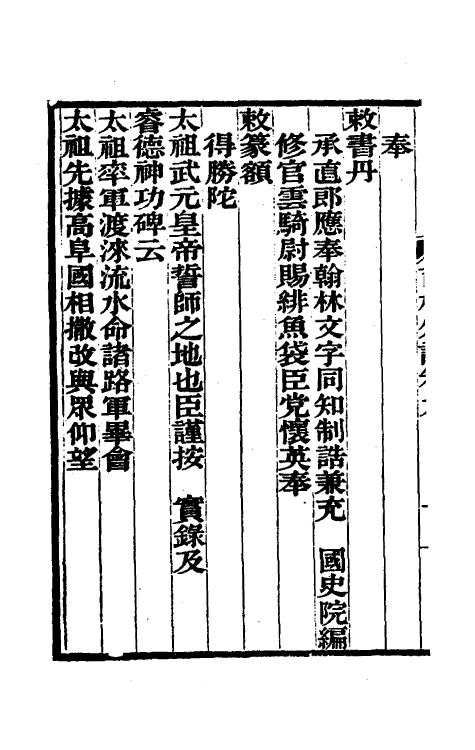 奉
敕書丹
承直郎應奉翰林文字同知制誥兼充 國史院編
修官雲騎尉賜緋魚袋臣党懷英奉
敕篆額
得勝陀
太祖武元皇帝誓師之地也臣謹按 實錄及
睿德神功碑云
太祖率軍渡淶流水命諸路軍畢會
太祖先據高阜國相撒改與眾仰望